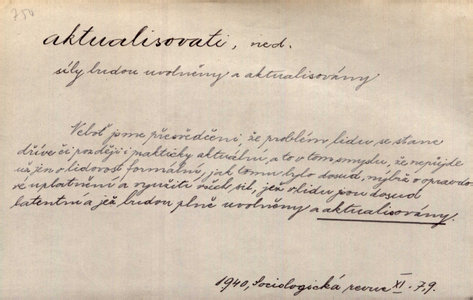 750
aktualisovati, ned.
síly budou uvolněny a aktualisovány
Neboť jsme přesvědčeni, že problém lidu se stane
dříve či později i prakticky aktuální, a to v tom smyslu, že nepůjde
už jen o lidovost formální, jak tomu bylo dosud, nýbrž o opravdové
uplatnění a využití všech sil, jež v lidu jsou dosud
latentní a jež budou plně uvolněny a aktualisovány.
1940, Sociologická revue XI. 7, 9.